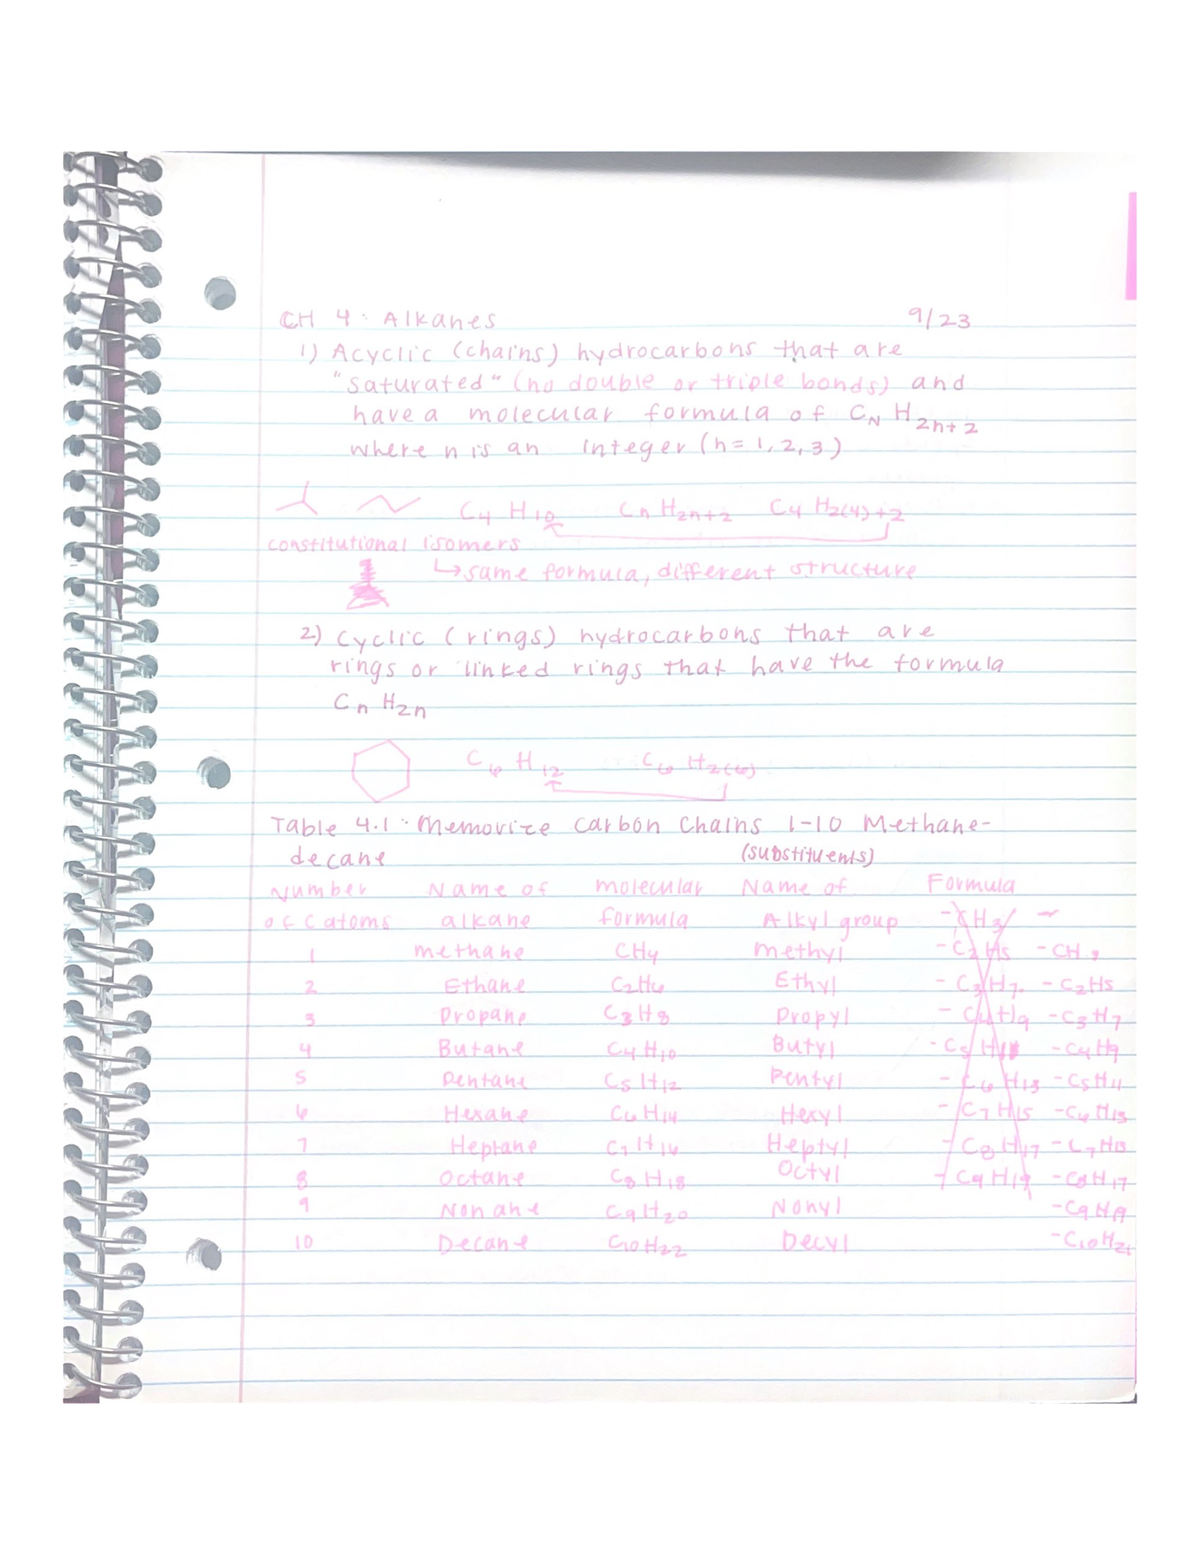 CH 4: Alkanes 9/23
1) Acyclic (chains) hydrocarbons that are
"saturated" (no double or triple bonds) and
have a molecular formula of CN H2n+2
where n is an integer (n=1,2,3)
C4 H10 Cn H2n+2 C4 H2(4)+2
constitutional isomers
↳ same formula, different structure
2) Cyclic (rings) hydrocarbons that are
rings or linked rings that have the formula
Cn H2n
C6 H12 C6 H2(6)
Table 4.1: Memorize Carbon Chains 1-10 Methane-
decane (substituents)
Number Name of molecular Name of Formula
of C atoms alkane formula Alkyl group -CH3
1 methane CH4 methyl -C2H5 -CH3
2 Ethane C2H6 Ethyl -C3H7 -C2H5
3 Propane C3H8 Propyl -C4H9 -C3H7
4 Butane C4H10 Butyl -C5H11 -C4H9
5 Pentane C5H12 Pentyl -C6H13 -C5H11
6 Hexane C6H14 Hexyl -C7H15 -C6H13
7 Heptane C7H16 Heptyl -C8H17 -C7H15
8 Octane C8H18 Octyl -C9H19 -C8H17
9 Nonane C9H20 Nonyl -C9H19
10 Decane C10H22 Decyl -C10H21